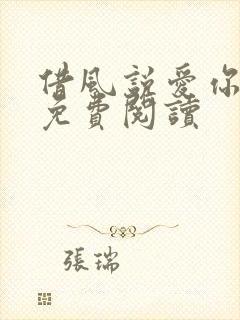 借風說愛你
免費閱讀
張瑞